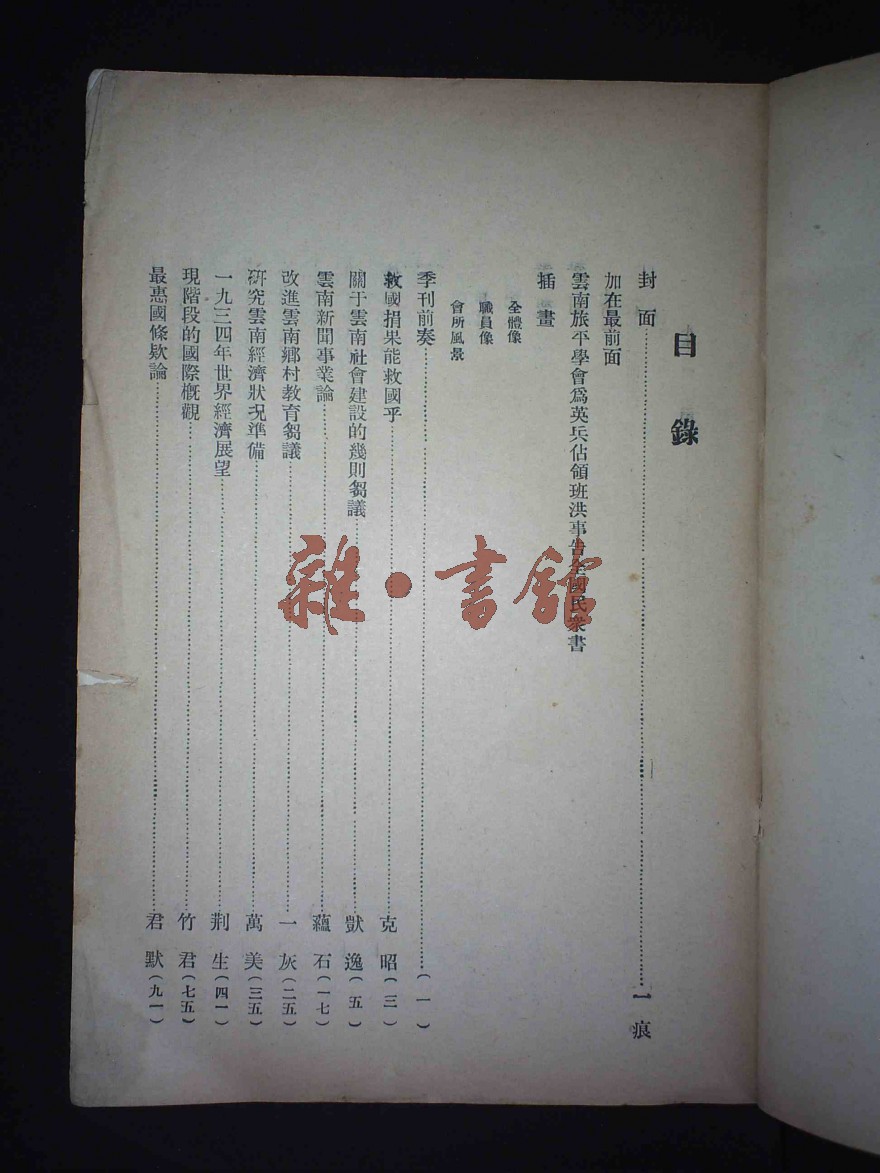 目錄
封面……一痕
加在最前面
雲南旅平學會爲英兵佔領班洪事告全國民衆書
插畫
全體像
職員像
會所風景
季刊前奏……(一)
救國捐果能救國乎……克昭(三)
關于雲南社會建設的幾則芻議……獣逸(五)
雲南新聞事業論……蘊石(一七)
改進雲南鄉村教育芻議……一灰(二五)
研究雲南經濟狀況準備……萬美(三五)
一九三四年世界經濟展望……荆生(四一)
現階段的國際概觀……竹君(七五)
最惠國條欵論……君默(九一)
雜·書館